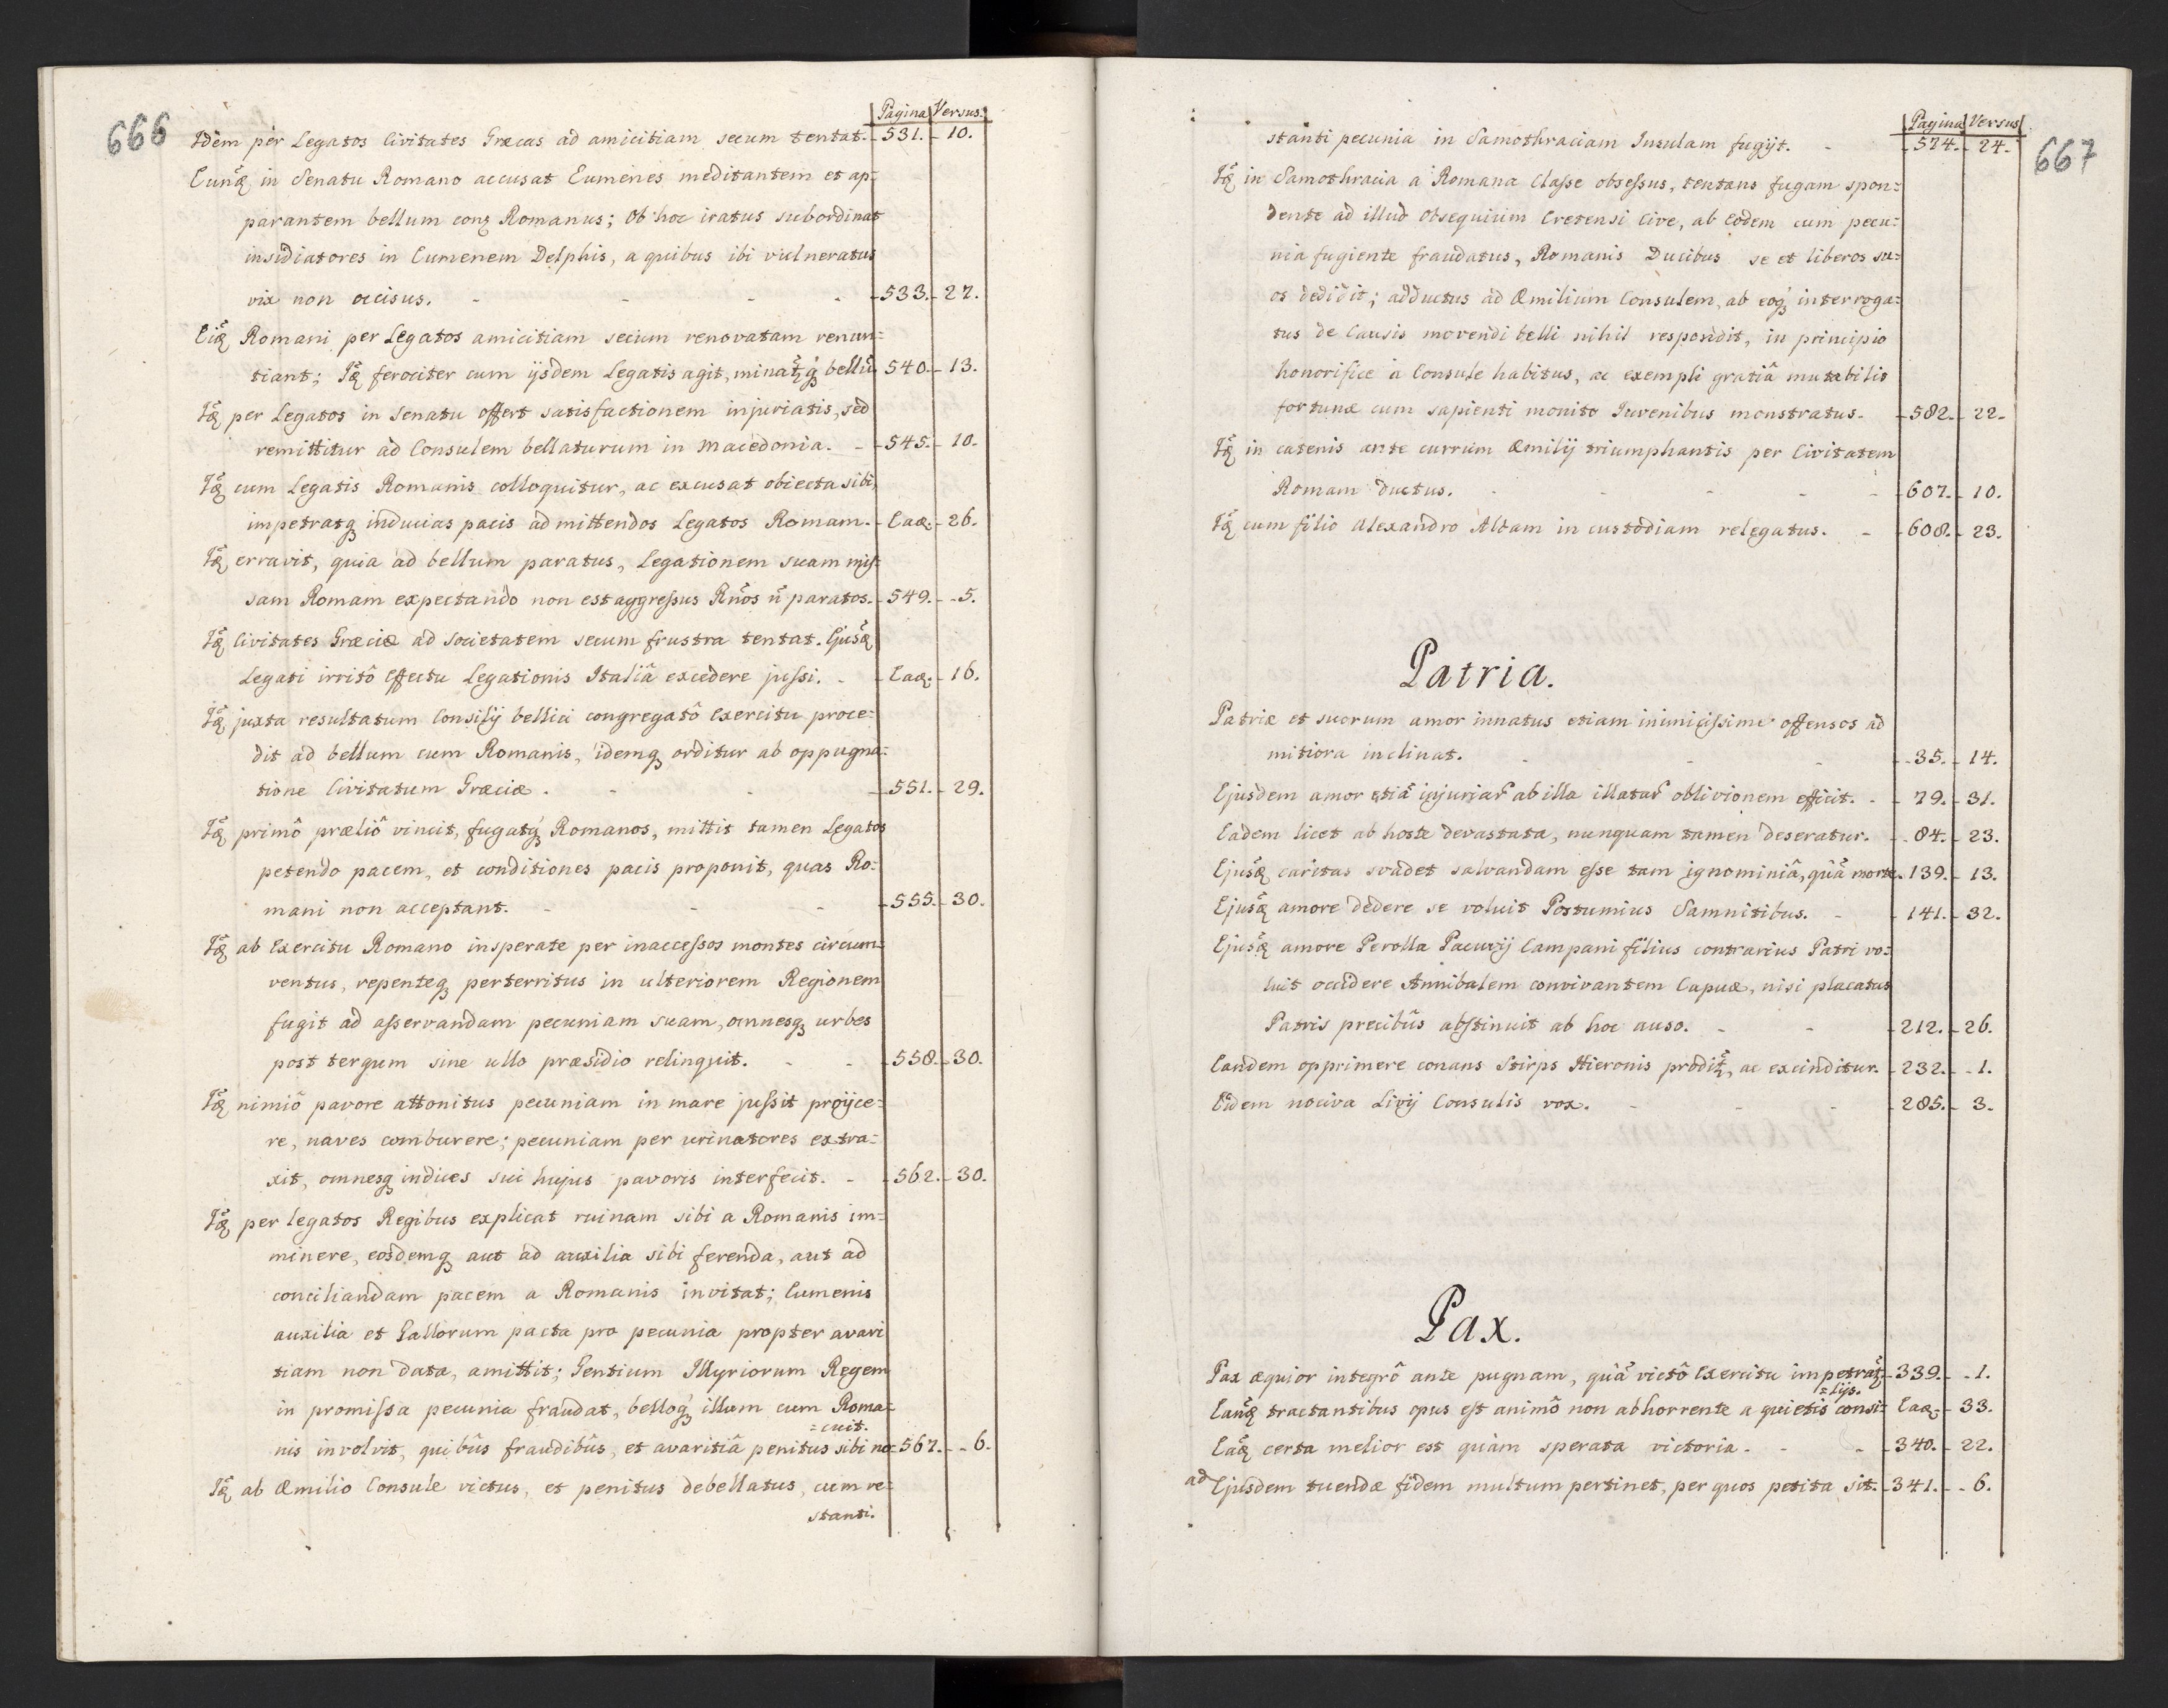 666
Pagina Versus.
Idem per Legatos Civitates Græcas ad amicitiam secum tentat. 531. 10.
Eunq̃ in Senatu Romano accusat Eumenes meditantem et ap=
parantem bellum conꝫ Romanus; Ob hoc iratus subordinat
insidiatores in Eumenem Delphis, a quibus ibi vulneratus
vix non occisus. - - - - 533. 27.
Eiq̃ Romani per Legatos amicitiam secum renovatam renun=
tiant; Iq̃ ferociter cum ijsdem Legatis agit, minat̃ꝫq́ꝫ bellũ 540. 13.
Iq̃ per Legatos in Senatu offert satisfactionem injuriatis, sed
remittitur ad Consulem bellaturum in Macedonia. - 545. 10.
Iq̃ cum Legatis Romanis colloquitur, ac excusat obiecta sibi,
impetratqꝫ inducias pacis ad mittendos Legatos Romam. Eaq. 26.
Iq̃ erravit, quia ad bellum paratus, Legationem suam mis=
sam Romam expectando non est aggressus Rños ñ paratos. 549. 5.
Iq̃ Civitates Græciæ ad societatem secum frustra tentat. Ejusq̃
Legati irritô Effectu Legationis Italiâ excedere jussi. - Eaq. 16.
Iq̃ juxta resultatum Consilij bellici congregatô Exercitu proce=
dit ad bellum cum Romanis, idemqꝫ orditur ab oppugna=
tione Civitatum Græciæ. - - - 551. 29.
Iq̃ primô præliô vincit, fugatq́ꝫ Romanos, mittit tamen Legatos
petendo pacem, et conditiones pacis proponit, quas Ro=
mani non acceptant. - - - 555. 30.
Iq̃ ab Exercitu Romano insperate per inaccessos montes circum=
ventus, repenteqꝫ perterritus in ulteriorem Regionem
fugit ad asservandam pecuniam suam, omnesqꝫ urbes
post tergum sine ullo præsidio relinquit. - - 558. 30.
Iq̃ nimiô pavore attonitus pecuniam in mare jussit proijce=
re, naves comburere; pecuniam per urinatores extra=
xit, omnesqꝫ indices sui hujus pavoris interfecit. - 562. 30.
Iq̃ per legatos Regibus explicat ruinam sibi a Romanis im=
minere, eosdemqꝫ aut ad auxilia sibi ferenda, aut ad
conciliandam pacem a Romanis invitat; Eumenis
auxilia et Gallorum pacta pro pecunia propter avari
tiam non data, amittit; Gentium Illyriorum Regem
in promissa pecunia fraudat, belloq́ꝫ illum cum Roma=
nis involvit, quibûs fraudibûs, et avaritiâ penitus sibi no= 567. 6.
=cuit.
Iq̃ ab Æmilio Consule victus, et penitus debellatus, cum re=
stanti.
667
Pagina Versus
stanti pecunia in Samothraciam Insulam fugijt. - 574. 24.
Iq̃ in Samothracia a Romana Classe obsessus, tentans fugam spon=
dente ad illud Obsequium Cretensi Cive, ab Eodem cum pecu=
nia fugiente fraudatus, Romanis Ducibus se et liberos su=
os dedidit; adductus ad Æmilium Consulem, ab eoq́ꝫ interroga=
tus de Causis movendi belli nihil respondit, in principio
honorifice a Consule habitus, ac exempli gratiâ mutabilis
fortunæ cum sapienti monito Iuvenibus monstratus. 582. 22.
Iq̃ in catenis ante currum Æmilij triumphantis per Civitatem
Romam ductus. - - - - 607. 10.
Iq̃ cum filio Alexandro Albam in custodiam relegatus. - 608. 23.
Patria.
Patriæ et suorum amor innatus etiam inimicissime offensos ad
mitiora inclinat. - - - 35. 14.
Ejusdem amor etiã injuriar̃ ab illa illatar̃ oblivionem efficit. - 79. 31.
Eadem licet ab hoste devastata, nunquam tamen deseratur. 84. 23.
Ejusq̃ caritas svadet salvandam esse tam ignominiâ, quã morte. 139. 13.
Ejusq̃ amore dedere se voluit Postumius Samnitibus. - 141. 32.
Ejusq̃ amore Perolla Pacuvij Campani filius contrarius Patri vo=
luit occidere Annibalem convivantem Capuæ, nisi placatus
Patris precibûs abstinuit ab hoc auso. - - 212. 26.
Eandem opprimere conans Stirps Hieronis prodit̃ꝫ, ac exscinditur. 232. 1.
Eidem nociva Livij Consulis vox. - - - 285. 3.
Pax.
Pax æquior integrô ante pugnam, quã victô Exercitu impetrat̃ꝫ 339. 1.
Eanq̃ tractantibus opus est animô non abhorrente a quietis consi= Eaq. 33.
=lijs.
Eaq̃ certa melior est quàm sperata victoria. - - 340. 22.
ad Ejusdem tuendæ fidem multum pertinet, per quos petita sit. 341. 6.